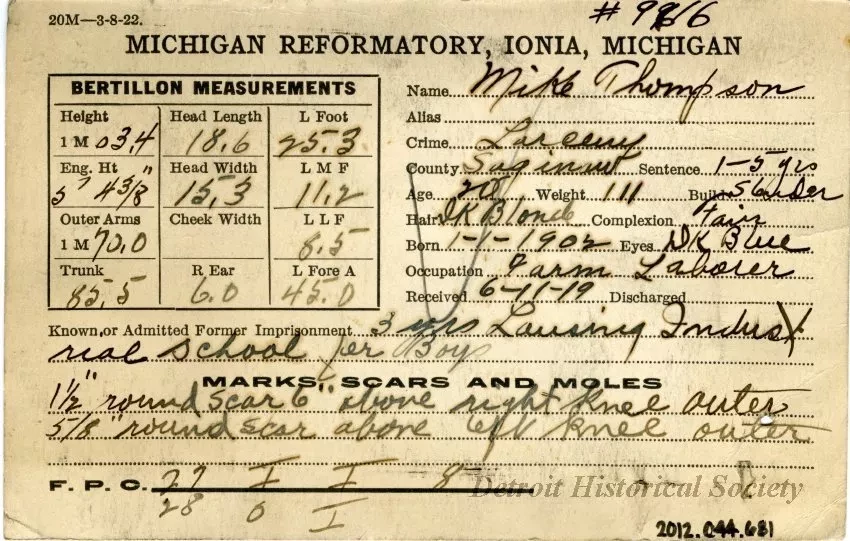 20M—3-8-22.
# 9916
MICHIGAN REFORMATORY, IONIA, MICHIGAN
BERTILLON MEASUREMENTS
Height Head Length L Foot
1 M 03.4 18.6 25.3
Eng. Ht Head Width L M F
5' 4 3/8" 15.3 11.2
Outer Arms Cheek Width L L F
1 M 70.0 8.5
Trunk R Ear L Fore A
85.5 6.0 45.0
Name Mike Thompson
Alias
Crime Larceny
County Saginaw Sentence 1-5 yrs
Age 20 Weight 111 Build Slender
Hair DK Blond Complexion Fair
Born 1-1-1902 Eyes DK Blue
Occupation Farm Laborer
Received 6-11-19 Discharged
Known or Admitted Former Imprisonment 3 yrs Lansing Indust
rial School for Boys
MARKS, SCARS AND MOLES
1 1/2" round scar 6" above right knee outer
5/8" round scar above left knee outer
F. P. C. 27 I I 8
28 0 I
Detroit Historical Society
2012.044.681